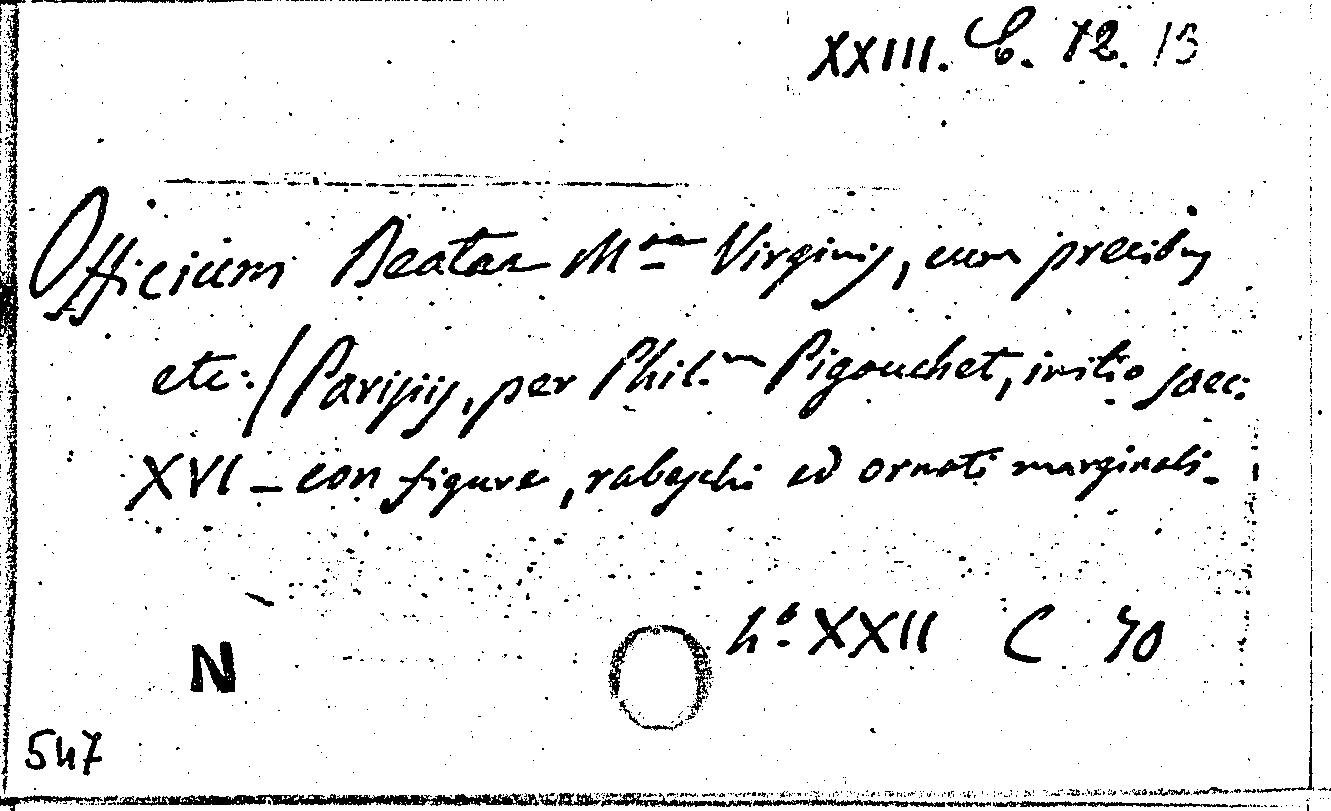 XXIII. C. 12. 13
Officium Beatae M.ae Virginis, cum precibus
etc: / Parisiis, per Phil.m Pigouchet, initio saec:
XVI - con figure, rabeschi ed ornati marginali.
XXII C 70
N
547